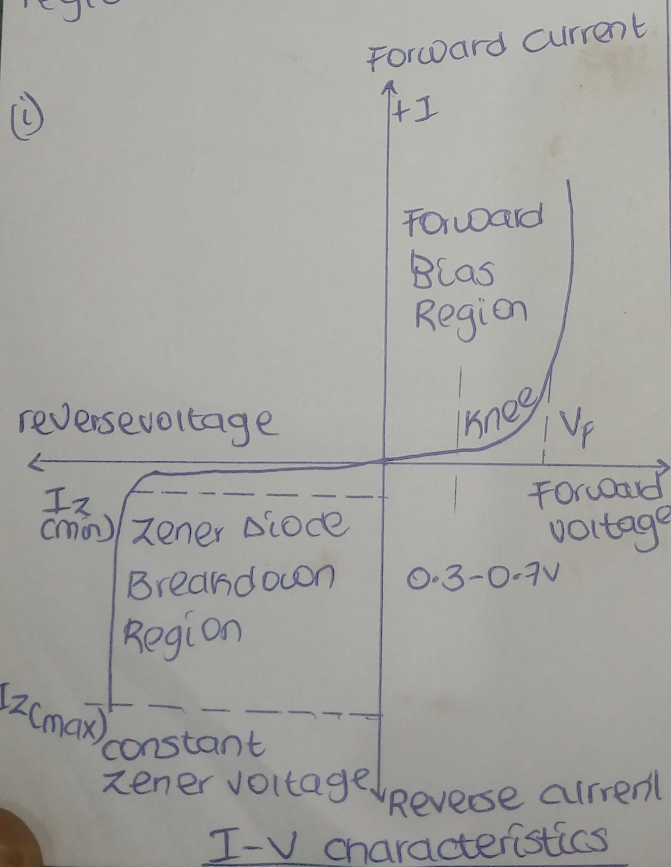 regio
Forward current
(i)
+I
Forward
Bias
Region
reversevoltage
Knee
VF
Iz
(min)
Forward
voltage
Zener Diode
Breakdown
Region
0.3-0.7V
Iz(max)
constant
Zener voltage
Reverse current
I-V characteristics